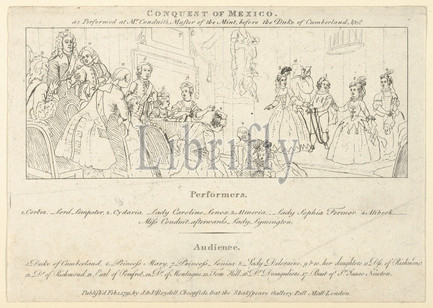 CONQUEST OF MEXICO.
as Performed at Mr. Conduitt's, Master of the Mint, before the Duke of Cumberland, &c.
Librifly
Performers.
1. Cortez. Lord Lempster. 2. Cydaria. Lady Caroline Lenox. 3. Almeria. Lady Sophia Fermor. 4. Alibech.
Miss Conduit, afterwards Lady Lymington.
Audience.
5. Duke of Cumberland. 6. Princess Mary. 7. Princess Louisa. 8. Lady Deloraine. 9 & 10. her daughters. 11. Dss. of Richmond.
12. D. of Richmond. 13. Earl of Pomfret. 14. D. of Montague. 15. Tom Hill. 16. Dr. Desaguliers. 17. Bust of Sr. Isaac Newton.
Publish'd Feb. 1, 1791, by J. & J. Boydell, Cheapside, & at the Shakspeare Gallery Pall Mall London.